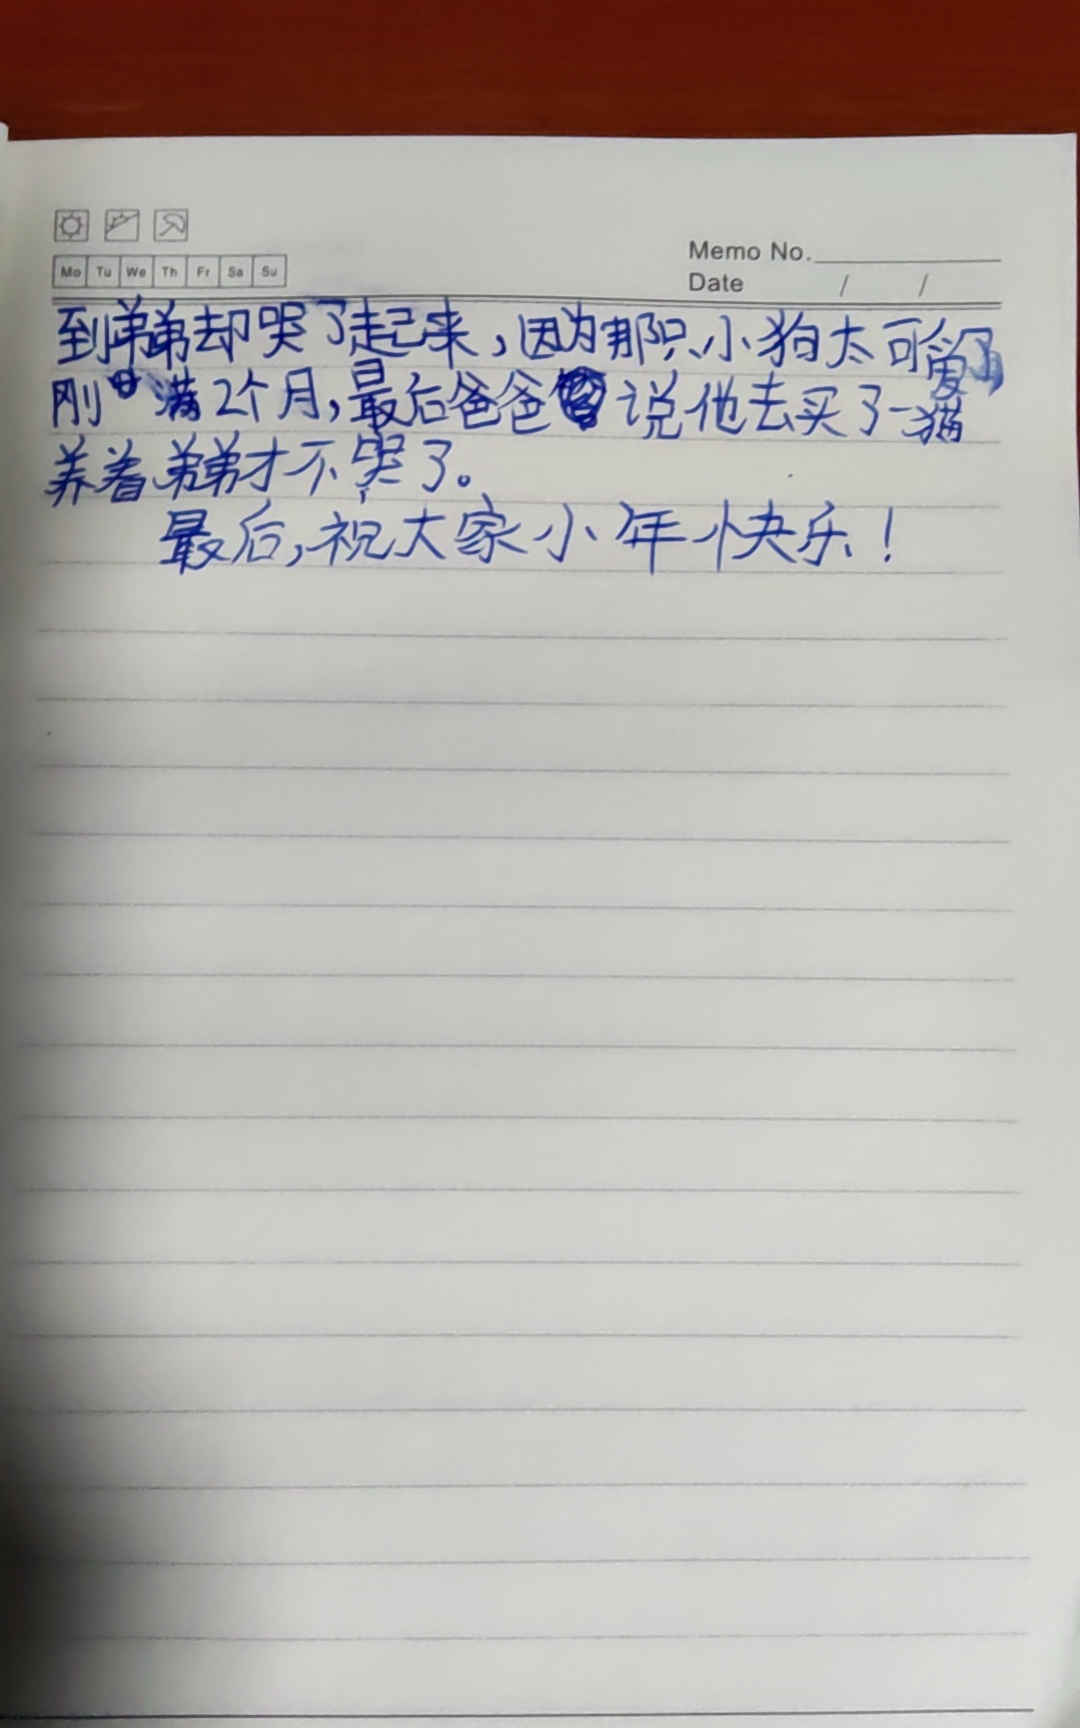 Mo Tu We Th Fr Sa Su
Memo No.
Date / /
到弟弟却哭了起来，因为那只小狗太可爱了，
刚满2个月，最后爸爸说他去买了一猫
养着弟弟才不哭了。
最后，祝大家小年快乐！